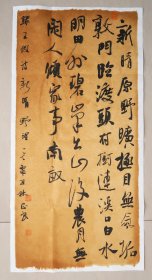 新晴原野曠極目無氛垢
郭門臨渡頭村樹連溪口白水
明田外碧峯出山後農月無
閒人傾家事南畝
王維詩新晴野望